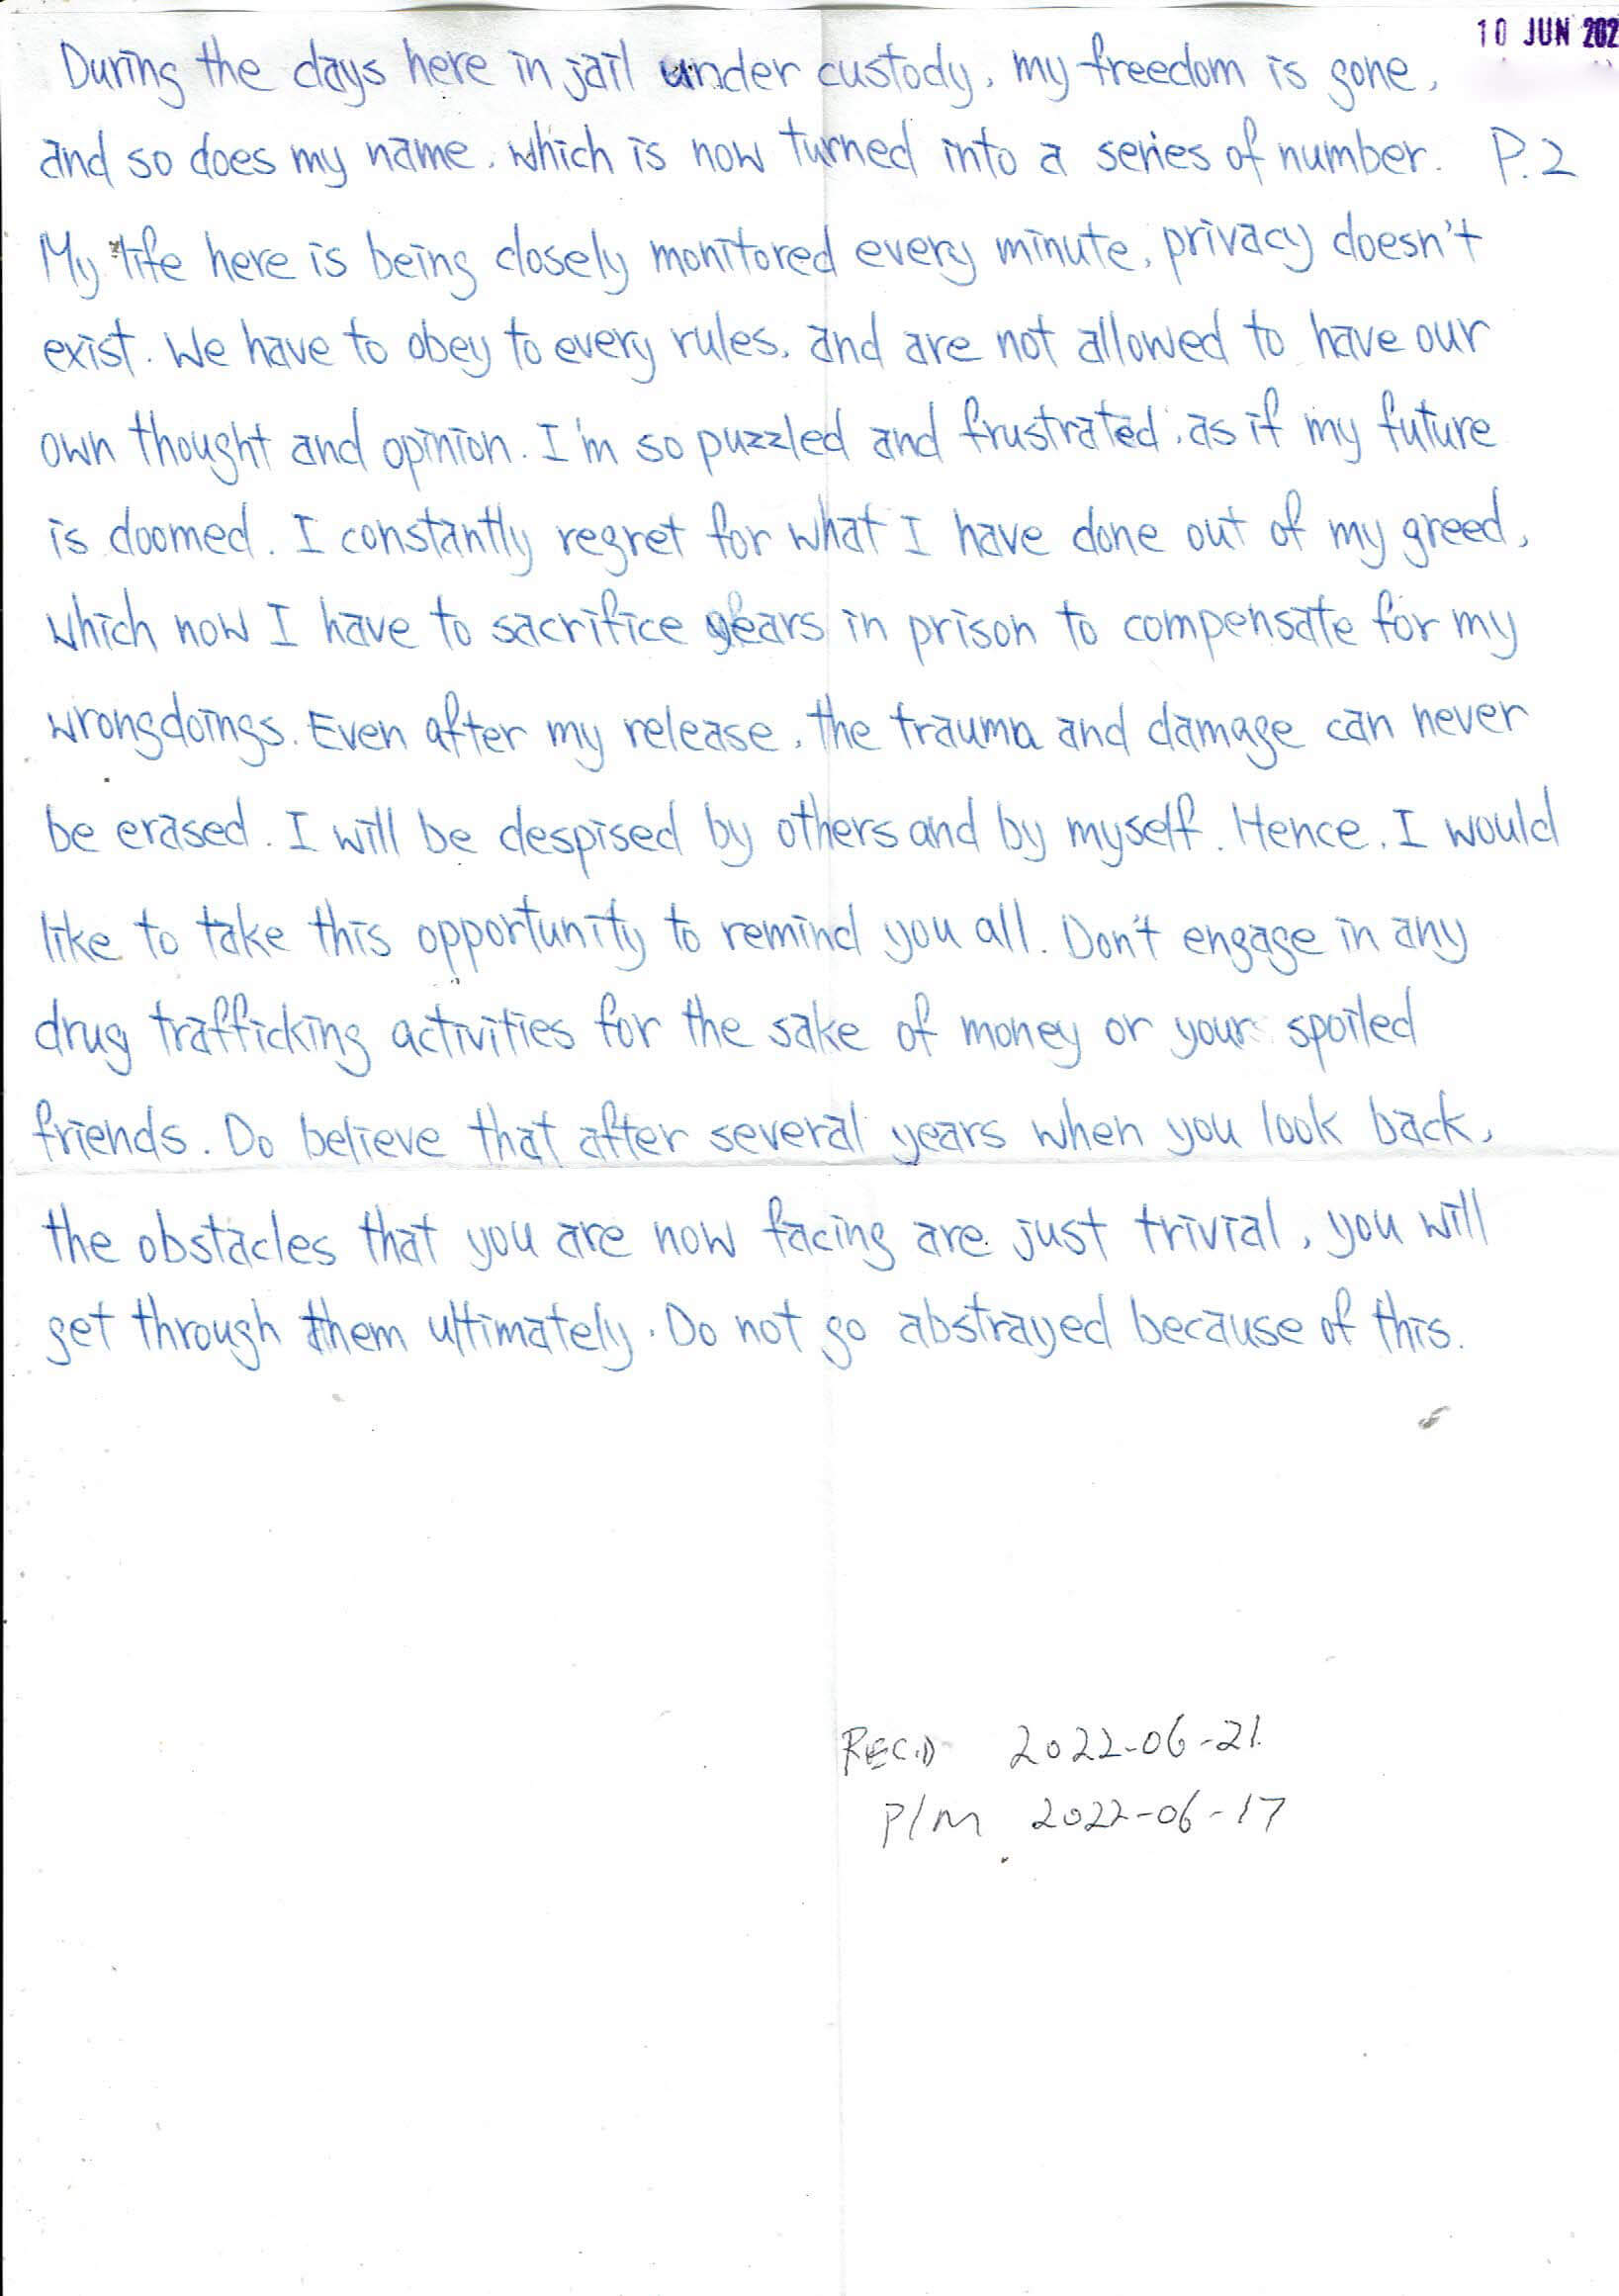 10 JUN 202
During the days here in jail under custody, my freedom is gone,
and so does my name, which is now turned into a series of number. P.2
My life here is being closely monitored every minute, privacy doesn't
exist. We have to obey to every rules, and are not allowed to have our
own thought and opinion. I'm so puzzled and frustrated, as if my future
is doomed. I constantly regret for what I have done out of my greed,
which now I have to sacrifice years in prison to compensate for my
wrongdoings. Even after my release, the trauma and damage can never
be erased. I will be despised by others and by myself. Hence, I would
like to take this opportunity to remind you all. Don't engage in any
drug trafficking activities for the sake of money or your spoiled
friends. Do believe that after several years when you look back,
the obstacles that you are now facing are just trivial, you will
get through them ultimately. Do not go abstrayed because of this.
REC.D 2022-06-21
P/M 2022-06-17